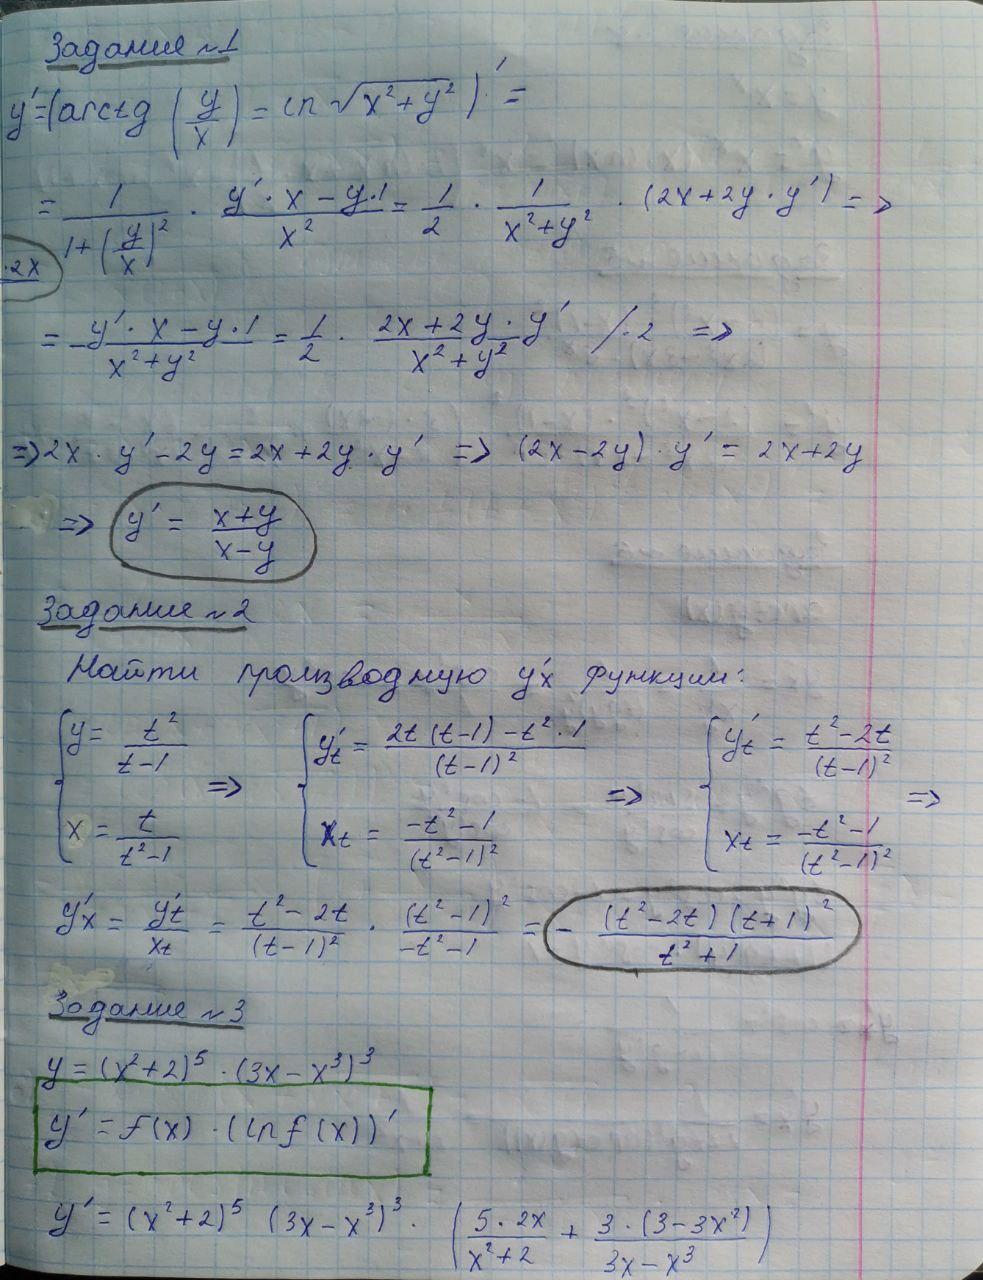 Задание №1
y'=(arctg (y/x) = ln √(x²+y²))' =
= 1/(1+(y/x)²) · (y'·x−y·1)/x² = 1/2 · 1/(x²+y²) · (2x+2y·y') =>
·2x
= (y'·x−y·1)/(x²+y²) = 1/2 · (2x+2y·y')/(x²+y²) /·2 =>
=> 2x·y'−2y=2x+2y·y' => (2x−2y)·y' = 2x+2y
=> y' = (x+y)/(x−y)
Задание №2
Найти производную y'x функции:
{ y = t²/(t−1) => { y't = (2t(t−1)−t²·1)/(t−1)² => { y't = (t²−2t)/(t−1)² =>
x = t/(t²−1) xt = (−t²−1)/(t²−1)² xt = (−t²−1)/(t²−1)²
y'x = y't/xt = (t²−2t)/(t−1)² · (t²−1)²/(−t²−1) = − (t²−2t)(t+1)²/(t²+1)
Задание №3
y = (x²+2)⁵ · (3x−x³)³
y' = f(x) · (ln f(x))'
y' = (x²+2)⁵ (3x−x³)³ · (5·2x/(x²+2) + 3·(3−3x²)/(3x−x³))